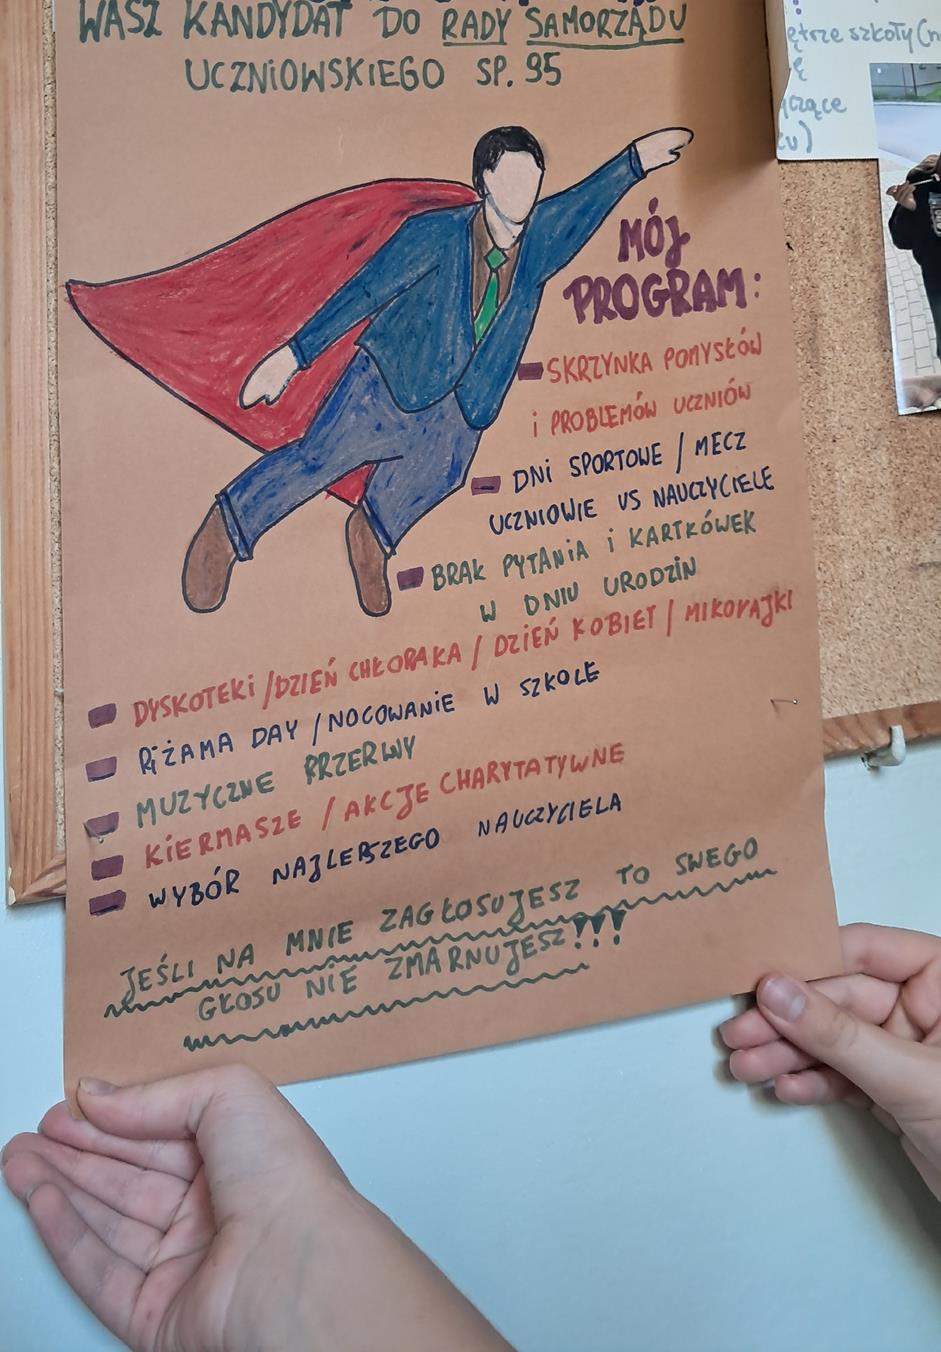 WASZ KANDYDAT DO RADY SAMORZĄDU
UCZNIOWSKIEGO SP. 95
MÓJ
PROGRAM:
SKRZYNKA POMYSŁÓW
i PROBLEMÓW UCZNIÓW
DNi SPORTOWE / MECZ
UCZNIOWIE VS NAUCZYCIELE
BRAK PYTANiA i KARTKÓWEK
W DNIU URODZiN
DYSKOTEKi / DZIEŃ CHŁOPAKA / DZIEŃ KOBIET / MIKOŁAJKI
PiŻAMA DAY / NOCOWANiE W SZKOLE
MUZYCZNE PRZERWY
KiERMASZE / AKCJE CHARYTATYWNE
WYBÓR NAJLEPSZEGO NAUCZYCIELA
JEŚLi NA MNIE ZAGŁOSUJESZ TO SWEGO
GŁOSU NIE ZMARNUJESZ!!!
szkoły